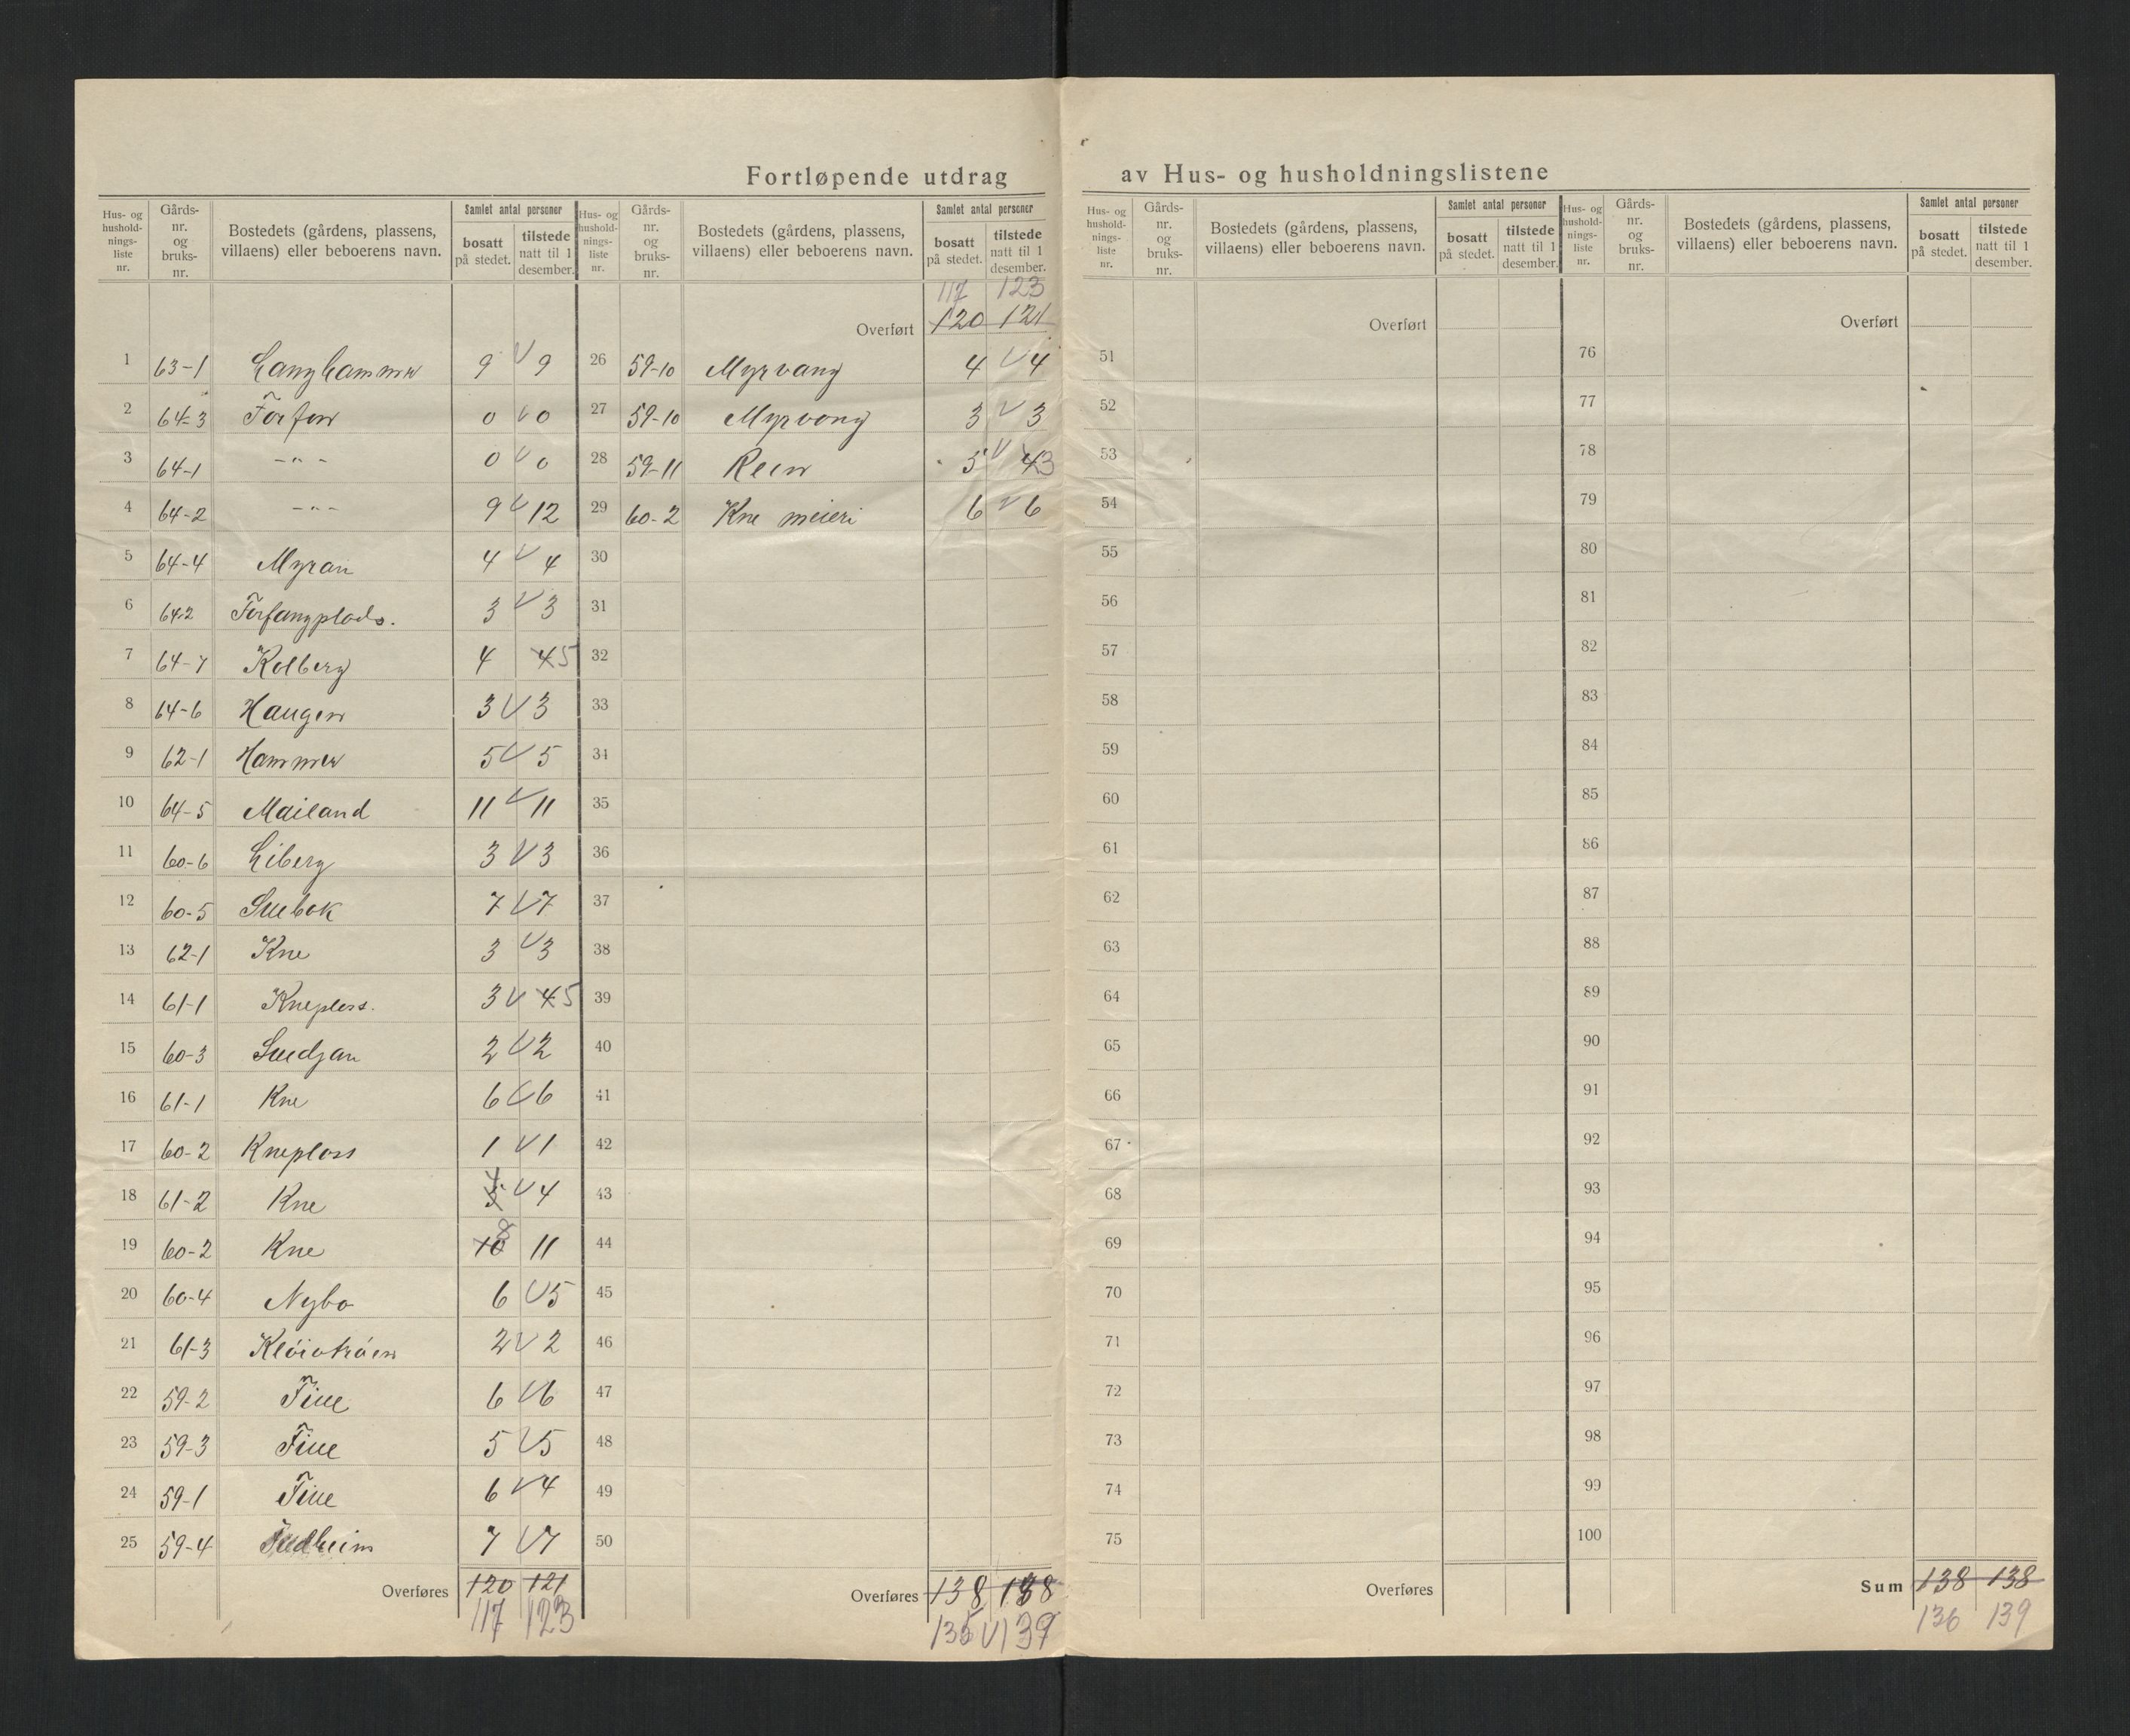 Fortløpende utdrag av Hus- og husholdningslistene
Hus- og husholdnings-liste nr. Gårds-nr. og bruks-nr. Bostedets (gårdens, plassens, villaens) eller beboerens navn. Samlet antal personer bosatt på stedet. tilstede natt til 1 desember.
1 63-1 Langhammer 9 V 9
2 64-3 Forfon 0 V 0
3 64-1 -"- 0 V 0
4 64-2 -"- 9 V 12
5 64-4 Myran 4 V 4
6 64-2 Forfangplads. 3 V 3
7 64-7 Kolberg 4 4 5
8 64-6 Haugen 3 V 3
9 62-1 Hammer 5 V 5
10 64-5 Mailand 11 V 11
11 60-6 Liberg 3 V 3
12 60-5 7 V 7
13 62-1 Kne 3 V 3
14 61-1 Kneplass. 3 V 4 5
15 60-3 2 V 2
16 61-1 Kne 6 V 6
17 60-2 Kneplass 1 V 1
18 61-2 Kne 5 4 V 4
19 60-2 Kne 10 8 11
20 60-4 Nybo 6 V 5
21 61-3 2 V 2
22 59-2 Fine 6 V 6
23 59-3 Fine 5 V 5
24 59-1 Fine 6 V 4
25 59-4 7 V 7
Overføres 120 121
117 123
Hus- og husholdnings-liste nr. Gårds-nr. og bruks-nr. Bostedets (gårdens, plassens, villaens) eller beboerens navn. Samlet antal personer bosatt på stedet. tilstede natt til 1 desember.
117 123
Overført 120 121
26 59-10 Myrvang 4 V 4
27 59-10 Myrvang 3 V 3
28 59-11 Reen 5 V 4 3
29 60-2 Kne meieri 6 V 6
30
31
32
33
34
35
36
37
38
39
40
41
42
43
44
45
46
47
48
49
50
Overføres 138 138
135 V 139
Hus- og husholdnings-liste nr. Gårds-nr. og bruks-nr. Bostedets (gårdens, plassens, villaens) eller beboerens navn. Samlet antal personer bosatt på stedet. tilstede natt til 1 desember.
Overført
51
52
53
54
55
56
57
58
59
60
61
62
63
64
65
66
67
68
69
70
71
72
73
74
75
Overføres
Hus- og husholdnings-liste nr. Gårds-nr. og bruks-nr. Bostedets (gårdens, plassens, villaens) eller beboerens navn. Samlet antal personer bosatt på stedet. tilstede natt til 1 desember.
Overført
76
77
78
79
80
81
82
83
84
85
86
87
88
89
90
91
92
93
94
95
96
97
98
99
100
Sum 138 138
136 139